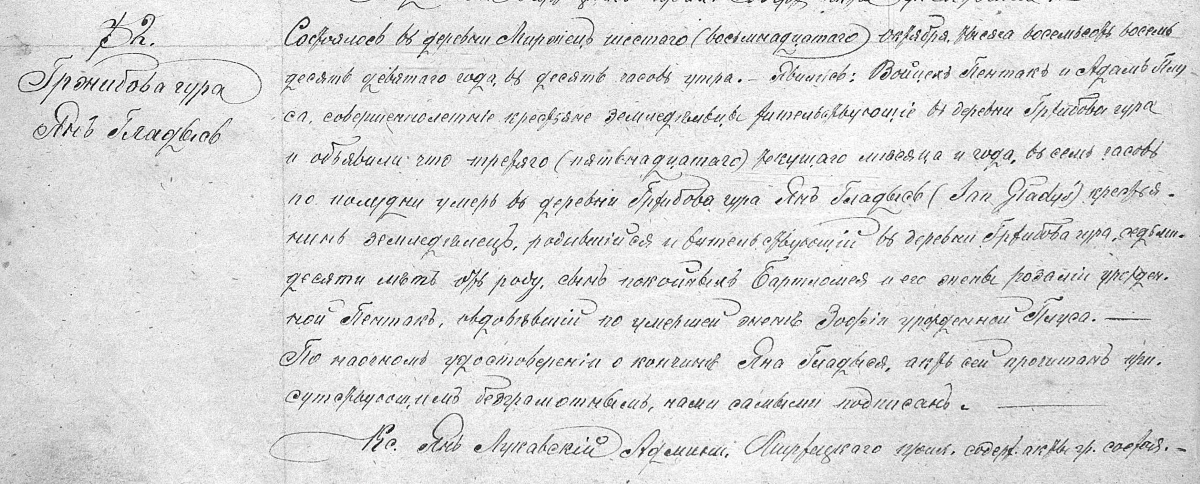 72.
Гржибова гура
Янъ Гладысь
Состоялось въ деревни Миржец шестаго (восьмнадцатаго) октября, тысяча восемьсотъ восемь
десятъ девятаго года, въ десять часовъ утра. – Явились: Войцехъ Пентакъ и Адамъ Плу
са, совершеннолетніе крестьяне земледельцы жительствующіе въ деревни Гржибова гура
и объявили что третяго (пятьнадцатаго) текущаго месяца и года, въ семь часовъ
по полудни умеръ въ деревни Гржибова гура Янъ Гладысь (Jan Gładyś) крестья-
нинъ земледелецъ, родившійся и жительствующій въ деревни Гржибова гура, седьми
десяти летъ отъ роду, сынъ покойныхъ Бартломея и его жены Розаліи урожден-
ной Пентакъ, овдовѣвшій по умершей женѣ Зофіи урожденной Плуса. —
По наочномъ удостовереніи о кончинѣ Яна Гладыся, актъ сей прочитанъ при-
сутствующимъ безграмотнымъ, нами самыми подписанъ. —
Кс. Янъ Лукавскій Админ. Миржецкаго прих. содерж. акты гр. состоя. –